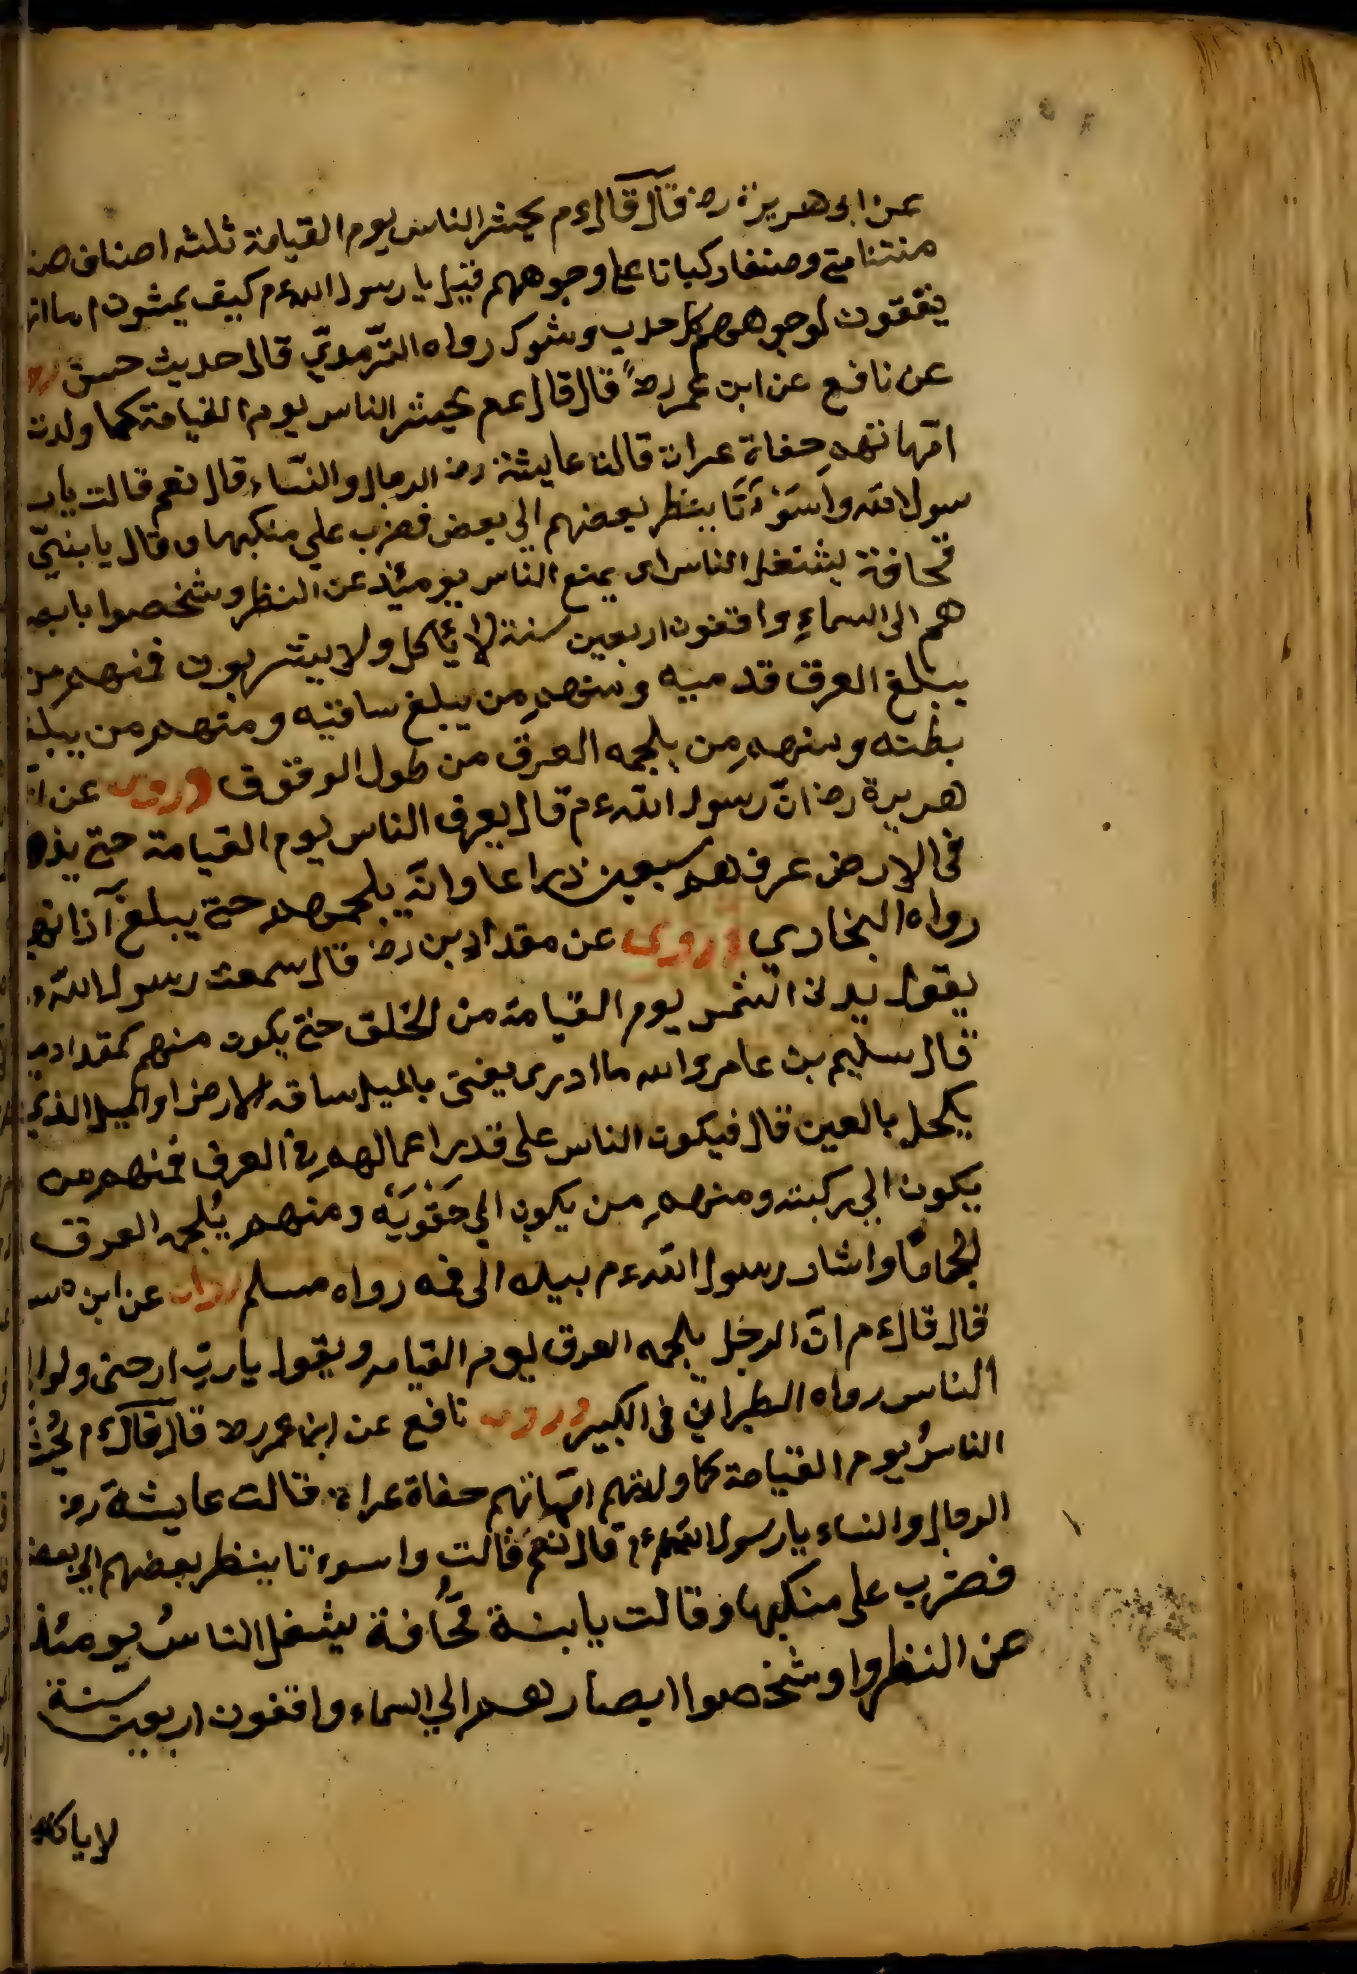 عن ابى هريرة رض قال قال ءم يحشر الناس يوم القيامة ثلثه اصناف
وصنفا ركبانا على وجوههم قيل يا رسول الله ءم كيف يمشون
يتقون لوجوههم كل حدب وشوك رواه الترمذي قال حديث حسن
عن نافع عن ابن عمر رض قال قال عم يحشر الناس يوم القيامة كما ولدت
امهاتهم حفاة عراة قالت عايشة رض الرجال والنساء قال نعم قالت يار
سول الله واسوءتا ينظر بعضهم الى بعض فضرب على منكبها وقال يا بنتي
قحافة يشتغل الناس اى يمنع الناس يومئذ عن النظر وشخصوا بابصا
هم الى السماء واقفون اربعين سنة لا يأكل ولا يشربون فمنهم من
يبلغ العرق قدميه ومنهم من يبلغ ساقيه ومنهم من يبلغ
بطنه ومنهم من يلجمه العرق من طول الوقوف وروى عن
هريرة رض ان رسول الله ءم قال يعرف الناس يوم القيامة حتى يذه
فى الارض عرفهم سبعين ذراعا وانه يلجمهم حتى يبلغ آذانهم
رواه البخارى وروى عن مقداد بن رض قال سمعت رسول الله ء
يقول يدنى الشمس يوم القيامة من الخلق حتى يكون منهم كمقدار
قال سليم بن عامر والله ما ادرى يعنى بالميل ساقه الارض او الميل الذى
يكحل بالعين قال فيكون الناس على قدر اعمالهم فى العرق فمنهم من
يكون الى ركبته ومنهم من يكون الى حقويه ومنهم يلجمه العرق
لجاما واشار رسول الله ءم بيده الى فمه رواه مسلم عن ابن
قال قال ءم ان الرجل يلجمه العرق ليوم القيامه ويقول يا رب ارحنى ولو
الناس رواه الطبرانى فى الكبير وروى نافع عن ابن عمر رض قال قال ءم يحشر
الناس يوم القيامة كما ولدتهم امهاتهم حفاة عراة فقالت عايشة رض
الرجال والنساء يا رسول الله ءم قال نعم فقالت واسوءتا ينظر بعضهم الى بعض
فضرب على منكبها وقالت يا بنة قحافة يشغل الناس يومئذ
عن النظر وا وشخصوا ابصارهم الى السماء واقفون اربعين سنة
لا ياكلو